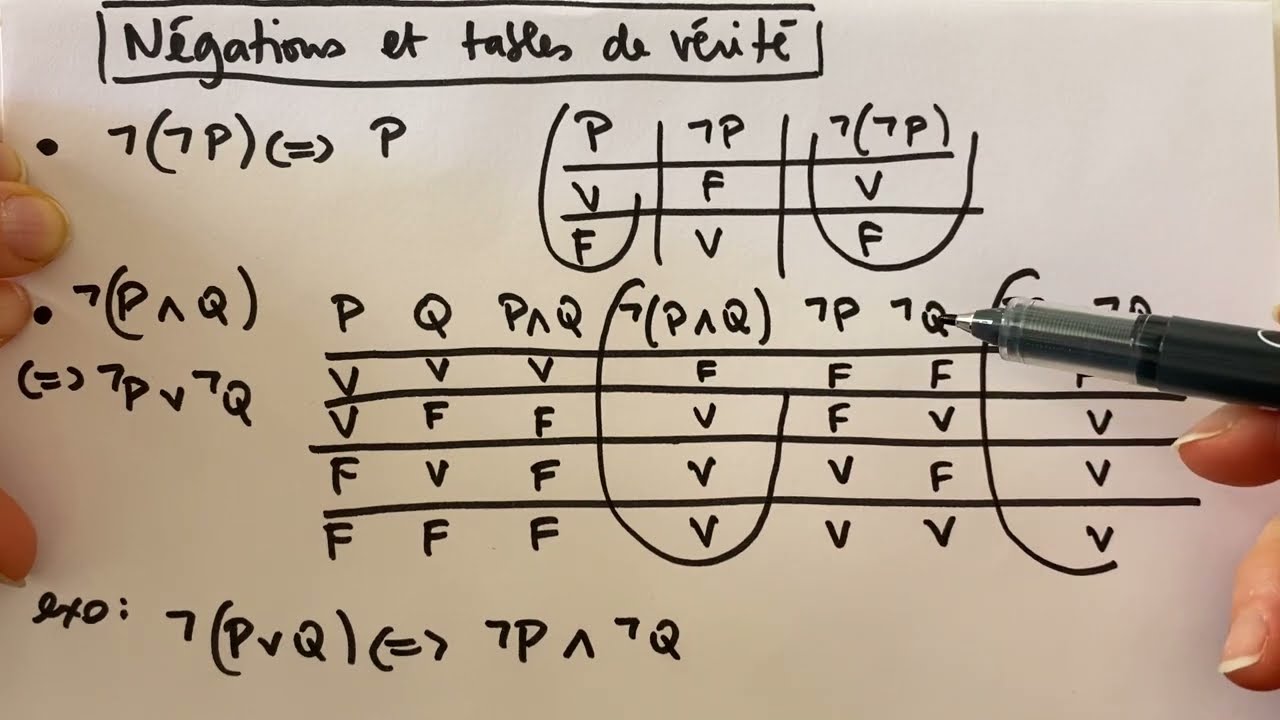 Négations et tables de vérité
• ¬(¬P) (=> P
P ¬P ¬(¬P)
V F V
F V F
• ¬(P ∧ Q)
(=> ¬P ∨ ¬Q
P Q P∧Q ¬(P∧Q) ¬P ¬Q ¬Q
V V V F F F F
V F F V F V V
F V F V V F V
F F F V V V V
exo: ¬(P∨Q) (=> ¬P ∧ ¬Q